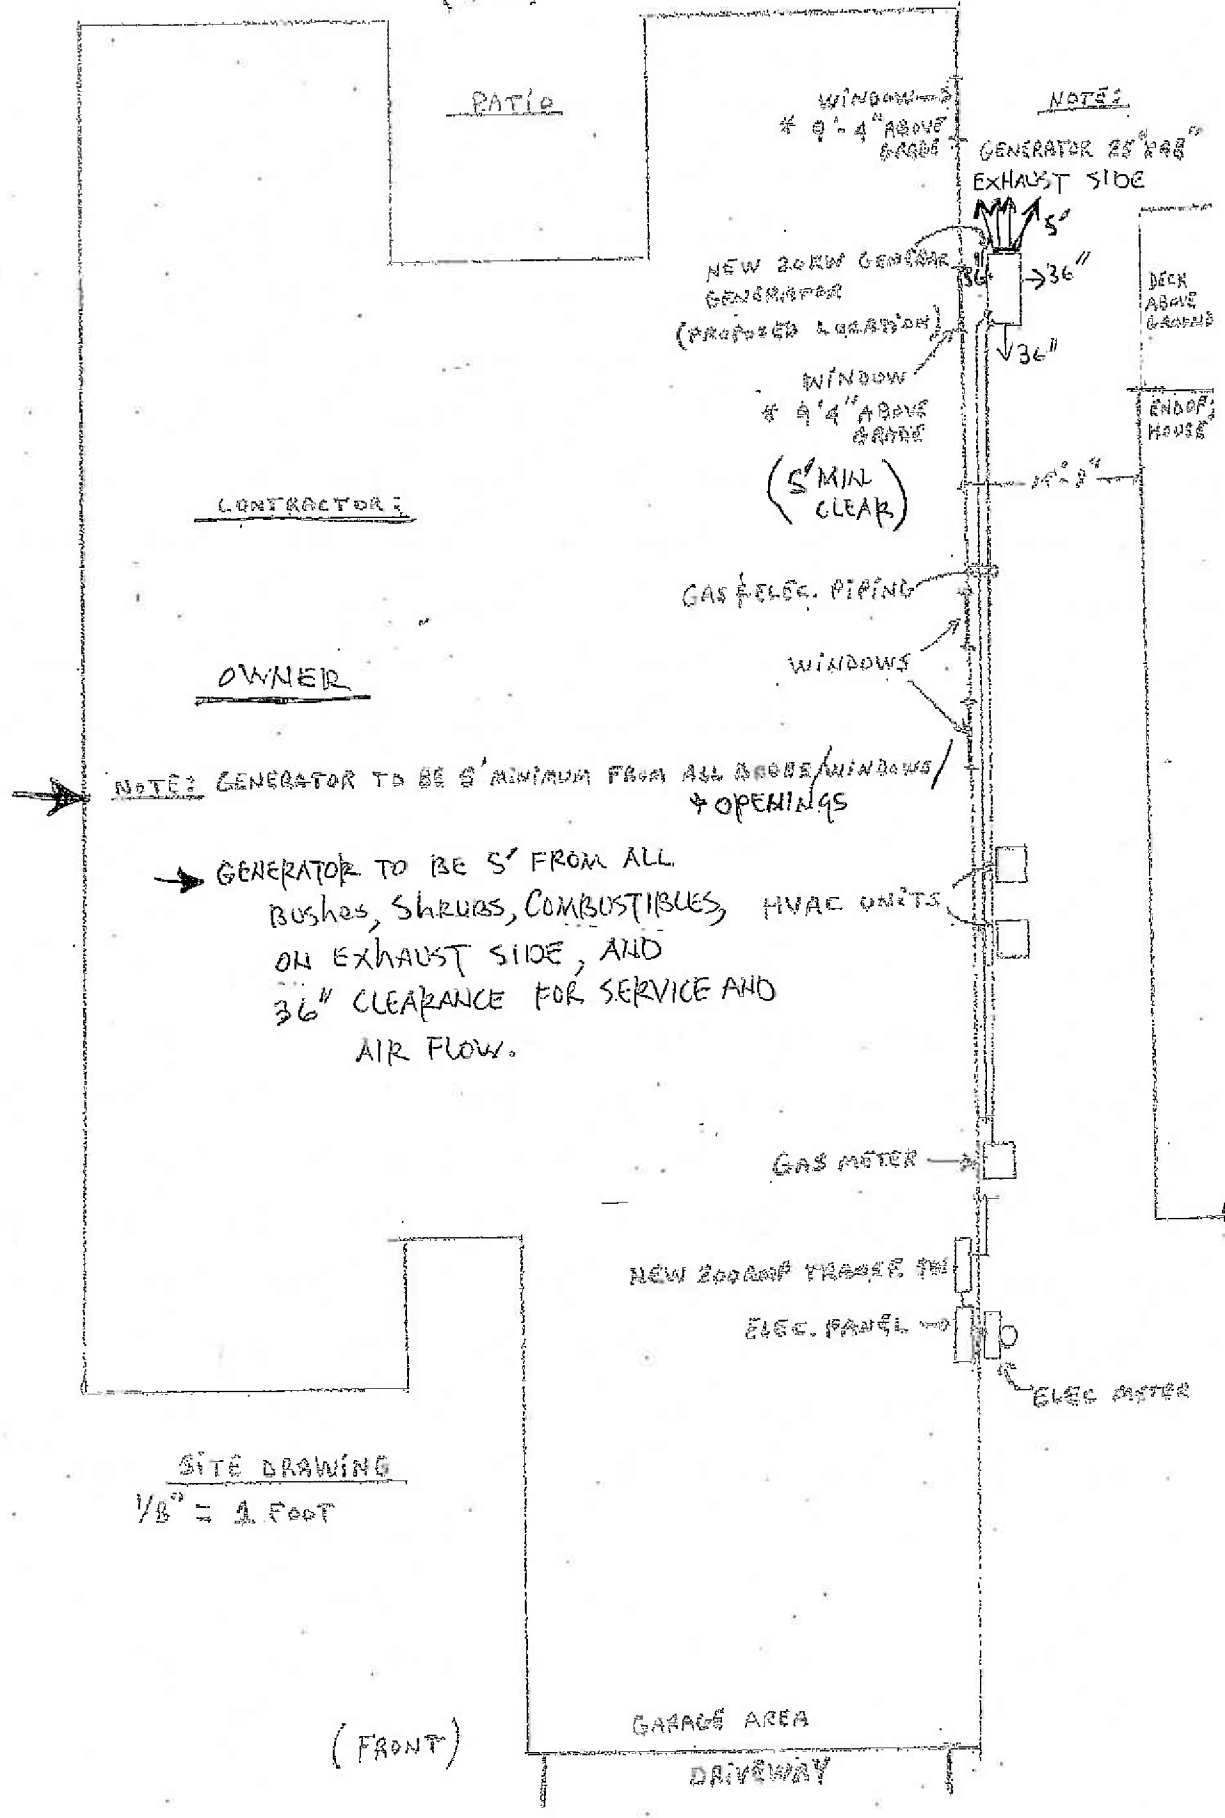 PATIO
WINDOW
* 9'-4" ABOVE
GRADE
NOTE:
GENERATOR 25" X 48"
EXHAUST SIDE
5'
NEW 20KW GENERAC
GENERATOR
(PROPOSED LOCATION)
36"
36"
36"
DECK
ABOVE
GROUND
WINDOW
* 9'4" ABOVE
GRADE
END OF
HOUSE
(5' MIN
CLEAR)
CONTRACTOR:
GAS & ELEC. PIPING
OWNER
WINDOWS
NOTE: GENERATOR TO BE 5' MINIMUM FROM ALL DOORS/WINDOWS/
+ OPENINGS
GENERATOR TO BE 5' FROM ALL
BUSHES, SHRUBS, COMBUSTIBLES,
ON EXHAUST SIDE, AND
36" CLEARANCE FOR SERVICE AND
AIR FLOW.
HVAC UNITS
GAS METER
NEW 200AMP TRANSF. SW
ELEC. PANEL
ELEC METER
SITE DRAWING
1/8" = 1 FOOT
(FRONT)
GARAGE AREA
DRIVEWAY